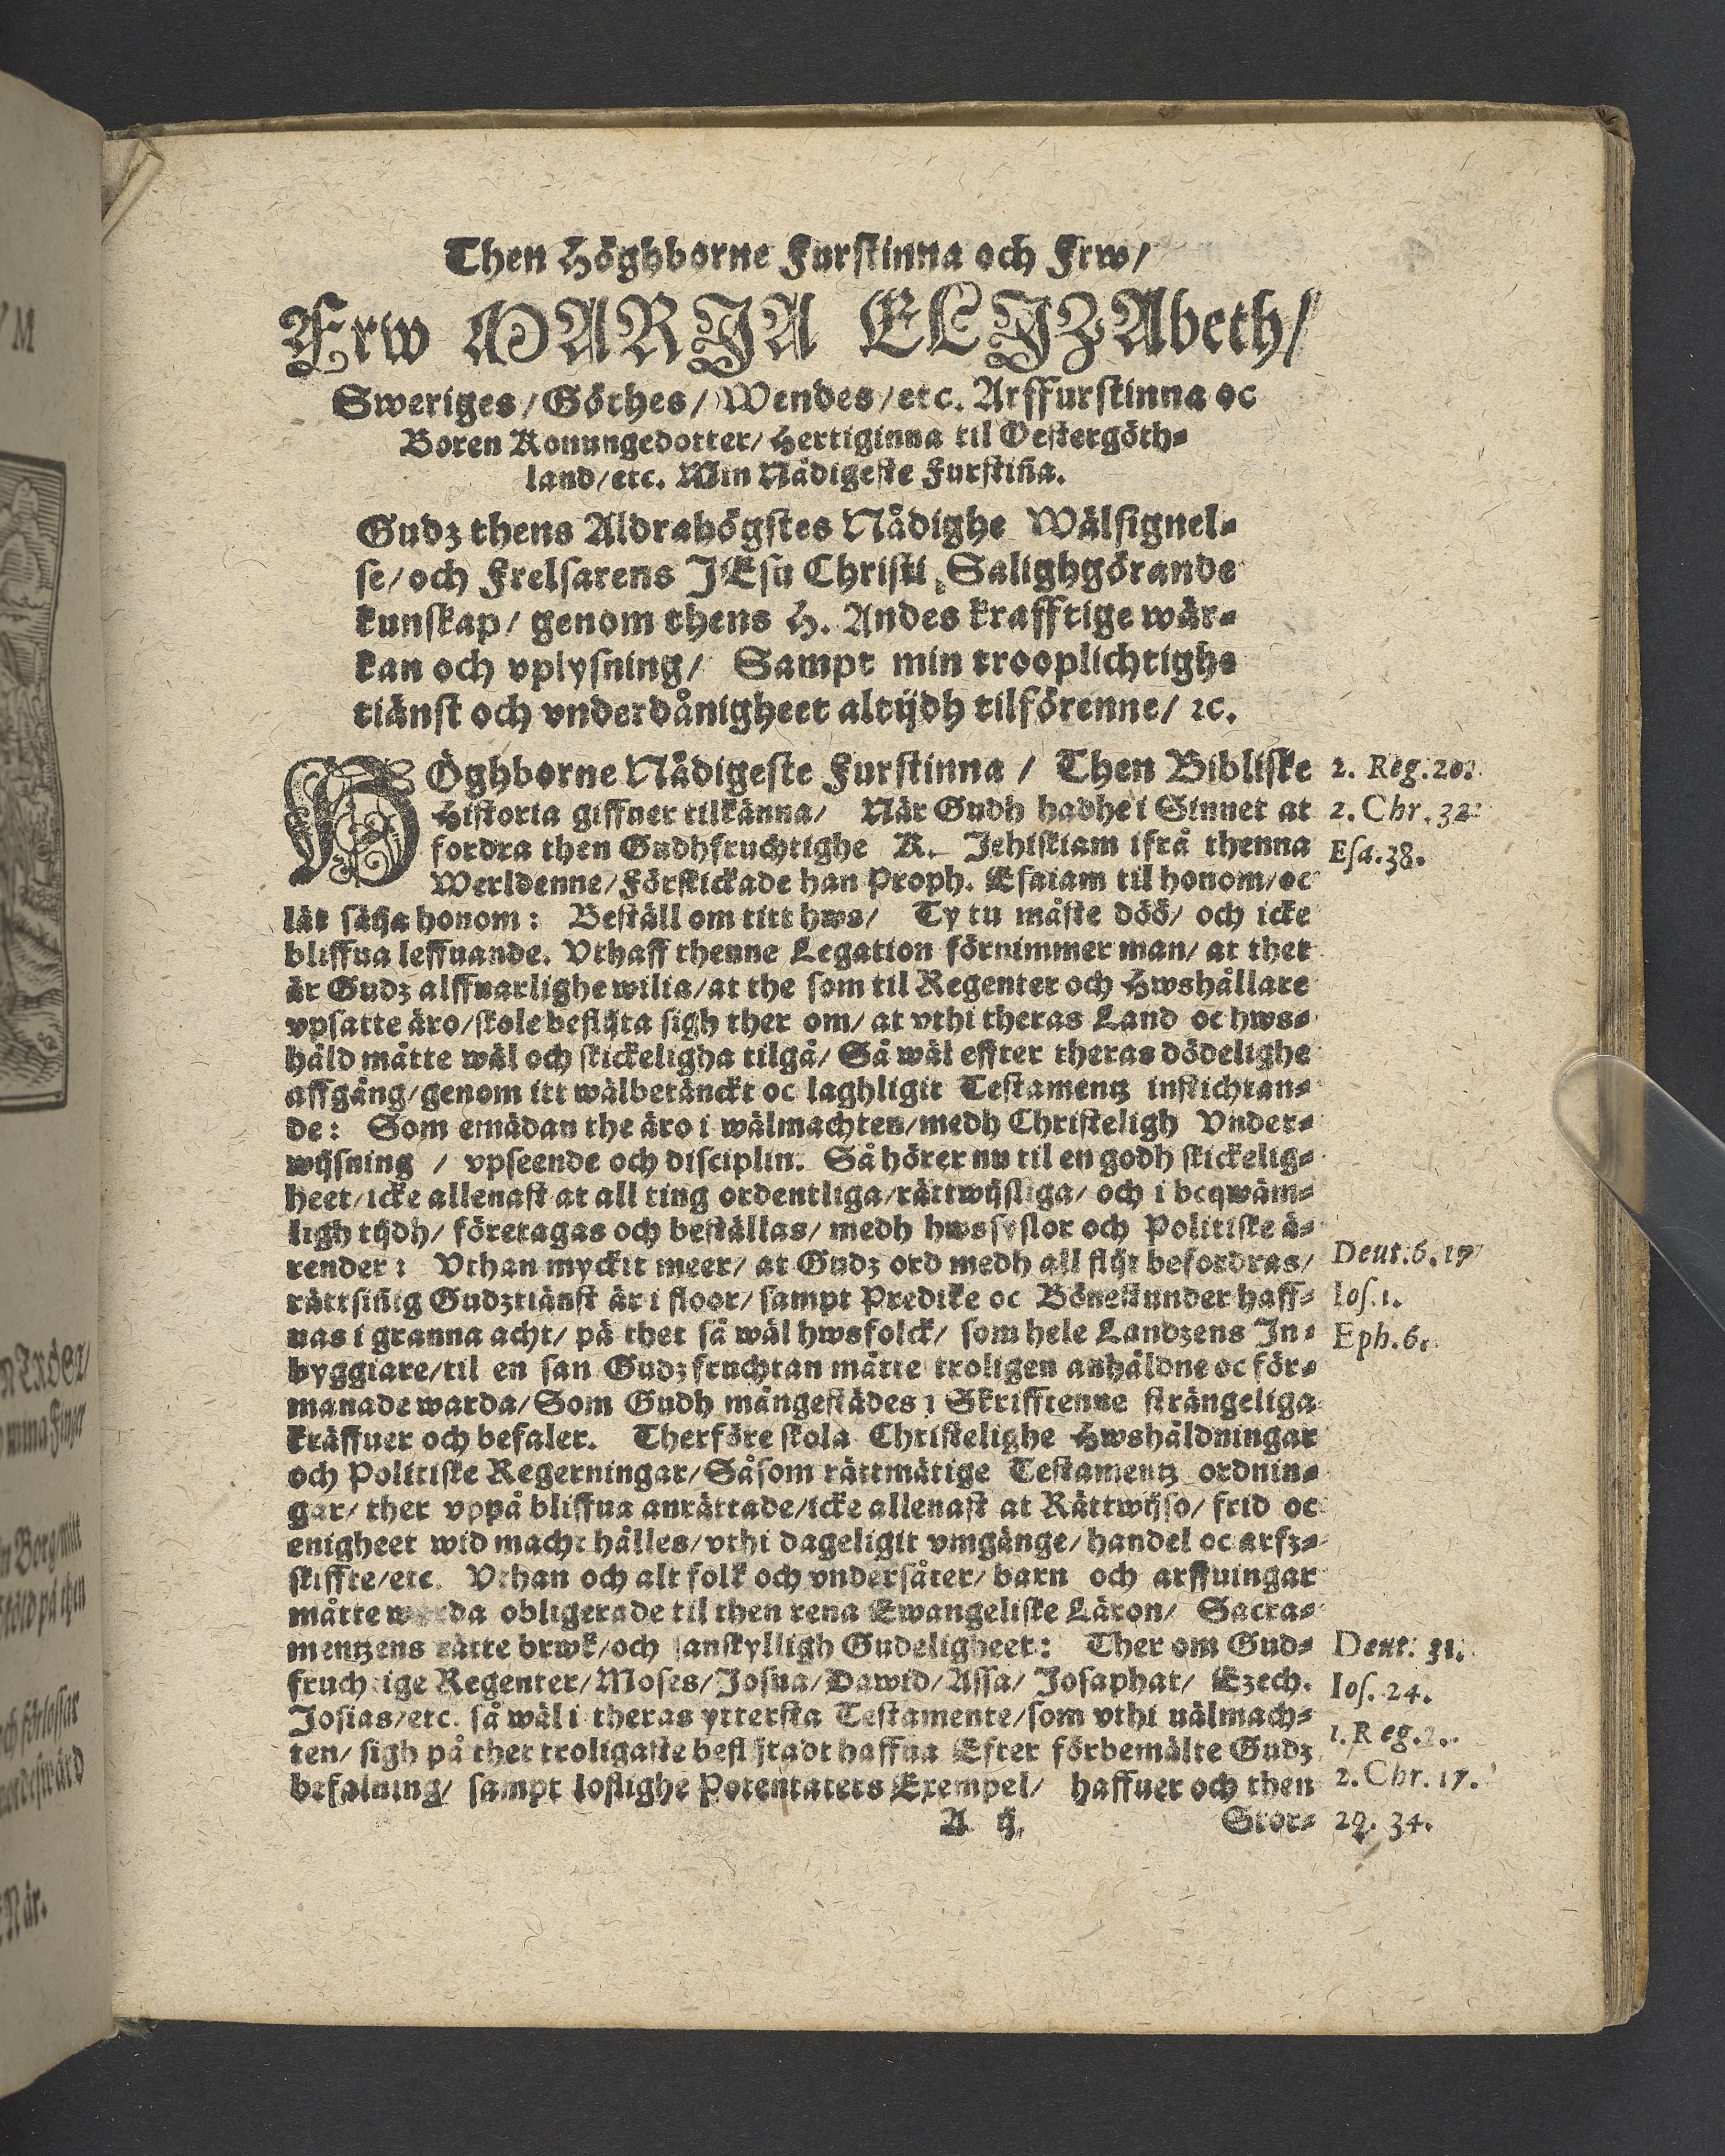 Then Höghborne Furstinna och Frw/
Frw MARIA ELIZAbeth/
Sweriges/Göthes/Wendes/etc. Arffurstinna oc
Boren Konungedotter/Hertiginna til Oestergöth-
land/etc. Min Nådigeste Furstiña.
Gudz thens Aldrahögstes Nådighe Wälsignel-
se/och Frelsarens JEsu Christi Salighgörande
kunskap/ genom thens H. Andes krafftige wär-
kan och vplysning/ Sampt min trooplichtighe
tiänst och vnderdånigheet altijdh tilförenne/ ꝛc.
HÖghborne Nådigeste Furstinna / Then Bibliske
Historia giffuer tilkänna/ När Gudh hadhe i Sinnet at
fordra then Gudhfruchtighe K. Jehiskiam ifrå thenna
Werldenne/Förskickade han Proph. Esaiam til honom/oc
lät säija honom: Beställ om titt hws/ Ty tu måste döö/ och icke
bliffua leffuande. Vthaff thenne Legation förnimmer man/ at thet
är Gudz alffuarlighe wilia/at the som til Regenter och Hwshållare
vpsatte äro/skole beflijta sigh ther om/ at vthi theras Land oc hws-
håld mätte wäl och skickeligha tilgå/ Så wäl effter theras dödelighe
affgång/genom itt wälbetänckt oc laghligit Testamentz instichtan-
de: Som emädan the äro i wälmachten/medh Christeligh Vnder-
wijsning / vpseende och disciplin. Så hörer nu til en godh skickelig-
heet/icke allenast at all ting ordentliga/rättwijsliga/ och i beqwäm-
ligh tijdh/ företagas och beställas/ medh hwssyslor och Politiske ä-
render: Vthan myckit meer/ at Gudz ord medh all flijt befordras/
rättsiñig Gudztiänst är i floor/ sampt Predike oc Bönestunder haff-
uas i granna acht/ på thet så wäl hwsfolck/ som hele Landzens In-
byggiare/til en san Gudz fruchtan mätte troligen anhåldne oc för-
manade warda/Som Gudh mångestädes i Skrifftenne strängeliga
kräffuer och befaler. Therföre skola Christelighe Hwshåldningar
och Politiske Regerningar/Såsom rättmätige Testamentz ordnin-
gar/ ther vppå bliffua anrättade/icke allenast at Rättwijso/ frid oc
enigheet wid macht hålles/vthi dageligit vmgänge/handel oc arfz-
skiffte/etc. Vthan och alt folk och vndersåter/ barn och arffuingar
måtte warda obligerade til then rena Ewangeliske Läron/ Sacra-
mentzens rätte brwk/och sanskylligh Gudeligheet: Ther om Gud-
fruchtige Regenter/Moses/Josua/Dawid/Assa/ Josaphat/ Ezech.
Josias/etc. så wäl i theras ytterska Testamente/som vthi wälmach-
ten/ sigh på thet troligaste beflijtadt haffua Efter förbemälte Gudz
befalning/ sampt loflighe Potentaters Exempel/ haffuer och then
A ij.
Stor-
2. Reg. 20.
2. Chr. 32
Esa. 38.
Deut. 6. 17
Ios. 1.
Eph. 6.
Deut. 31.
Ios. 24.
1. Reg. 2.
2. Chr. 17.
29. 34.